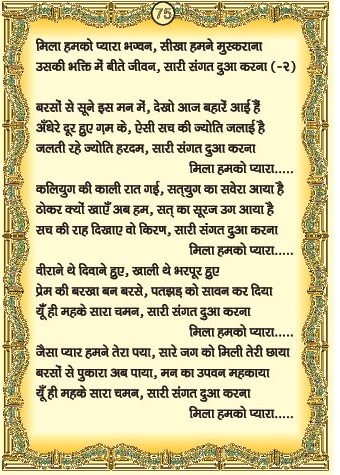 75
मिला हमको प्यारा भगवन, सीखा हमने मुस्कराना
उसकी भक्ति में बीते जीवन, सारी संगत दुआ करना (-२)
बरसों से सूने इस मन में, देखो आज बहारें आई हैं
अँधेरे दूर हुए ग़म के, ऐसी सच की ज्योति जलाई है
जलती रहे ज्योति हरदम, सारी संगत दुआ करना
मिला हमको प्यारा.....
कलियुग की काली रात गई, सत्‌युग का सवेरा आया है
ठोकर क्यों खाएँ अब हम, सत् का सूरज उग आया है
सच की राह दिखाए वो किरण, सारी संगत दुआ करना
मिला हमको प्यारा.....
वीराने थे दिवाने हुए, खाली थे भरपूर हुए
प्रेम की बरखा बन बरसे, पतझड़ को सावन कर दिया
यूँ ही महके सारा चमन, सारी संगत दुआ करना
मिला हमको प्यारा.....
जैसा प्यार हमने तेरा पया, सारे जग को मिली तेरी छाया
बरसों से पुकारा अब पाया, मन का उपवन महकाया
यूँ ही महके सारा चमन, सारी संगत दुआ करना
मिला हमको प्यारा.....